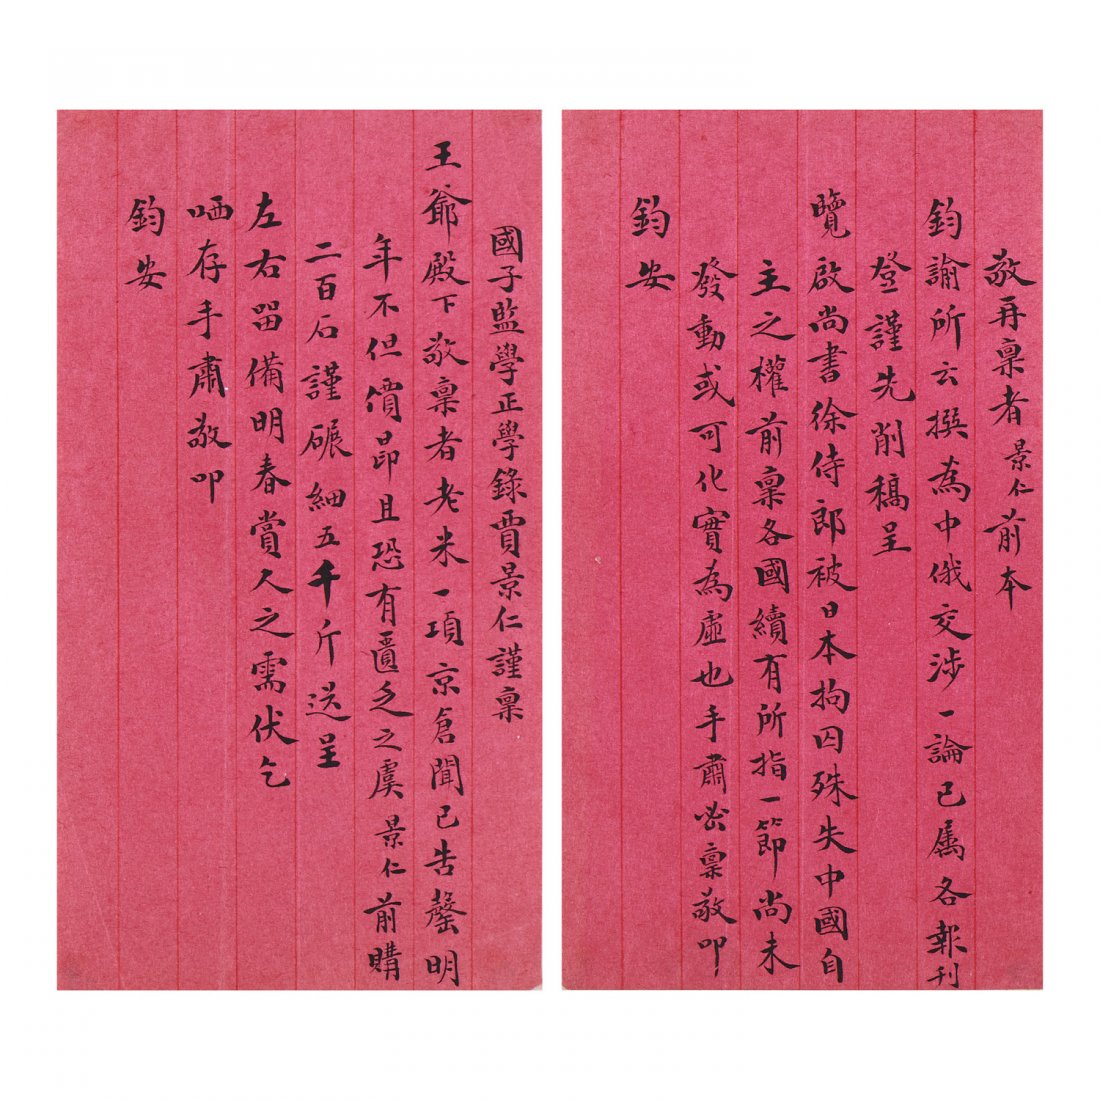 國子監學正學錄賈景仁謹稟
王爺殿下敬稟者老米一項京倉聞已告罄明
年不但價昂且恐有匱乏之虞景仁前購
二百石謹碾細五千斤送呈
左右留備明春賞人之需伏乞
哂存手肅敬叩
鈞安
敬再稟者景仁前本
鈞諭所云撰為中俄交涉一論已屬各報刊
登謹先削稿呈
覽啟尚書徐侍郎被日本拘囚殊失中國自
主之權前稟各國續有所指一節尚未
發動或可化實為虛也手肅密稟敬叩
鈞安